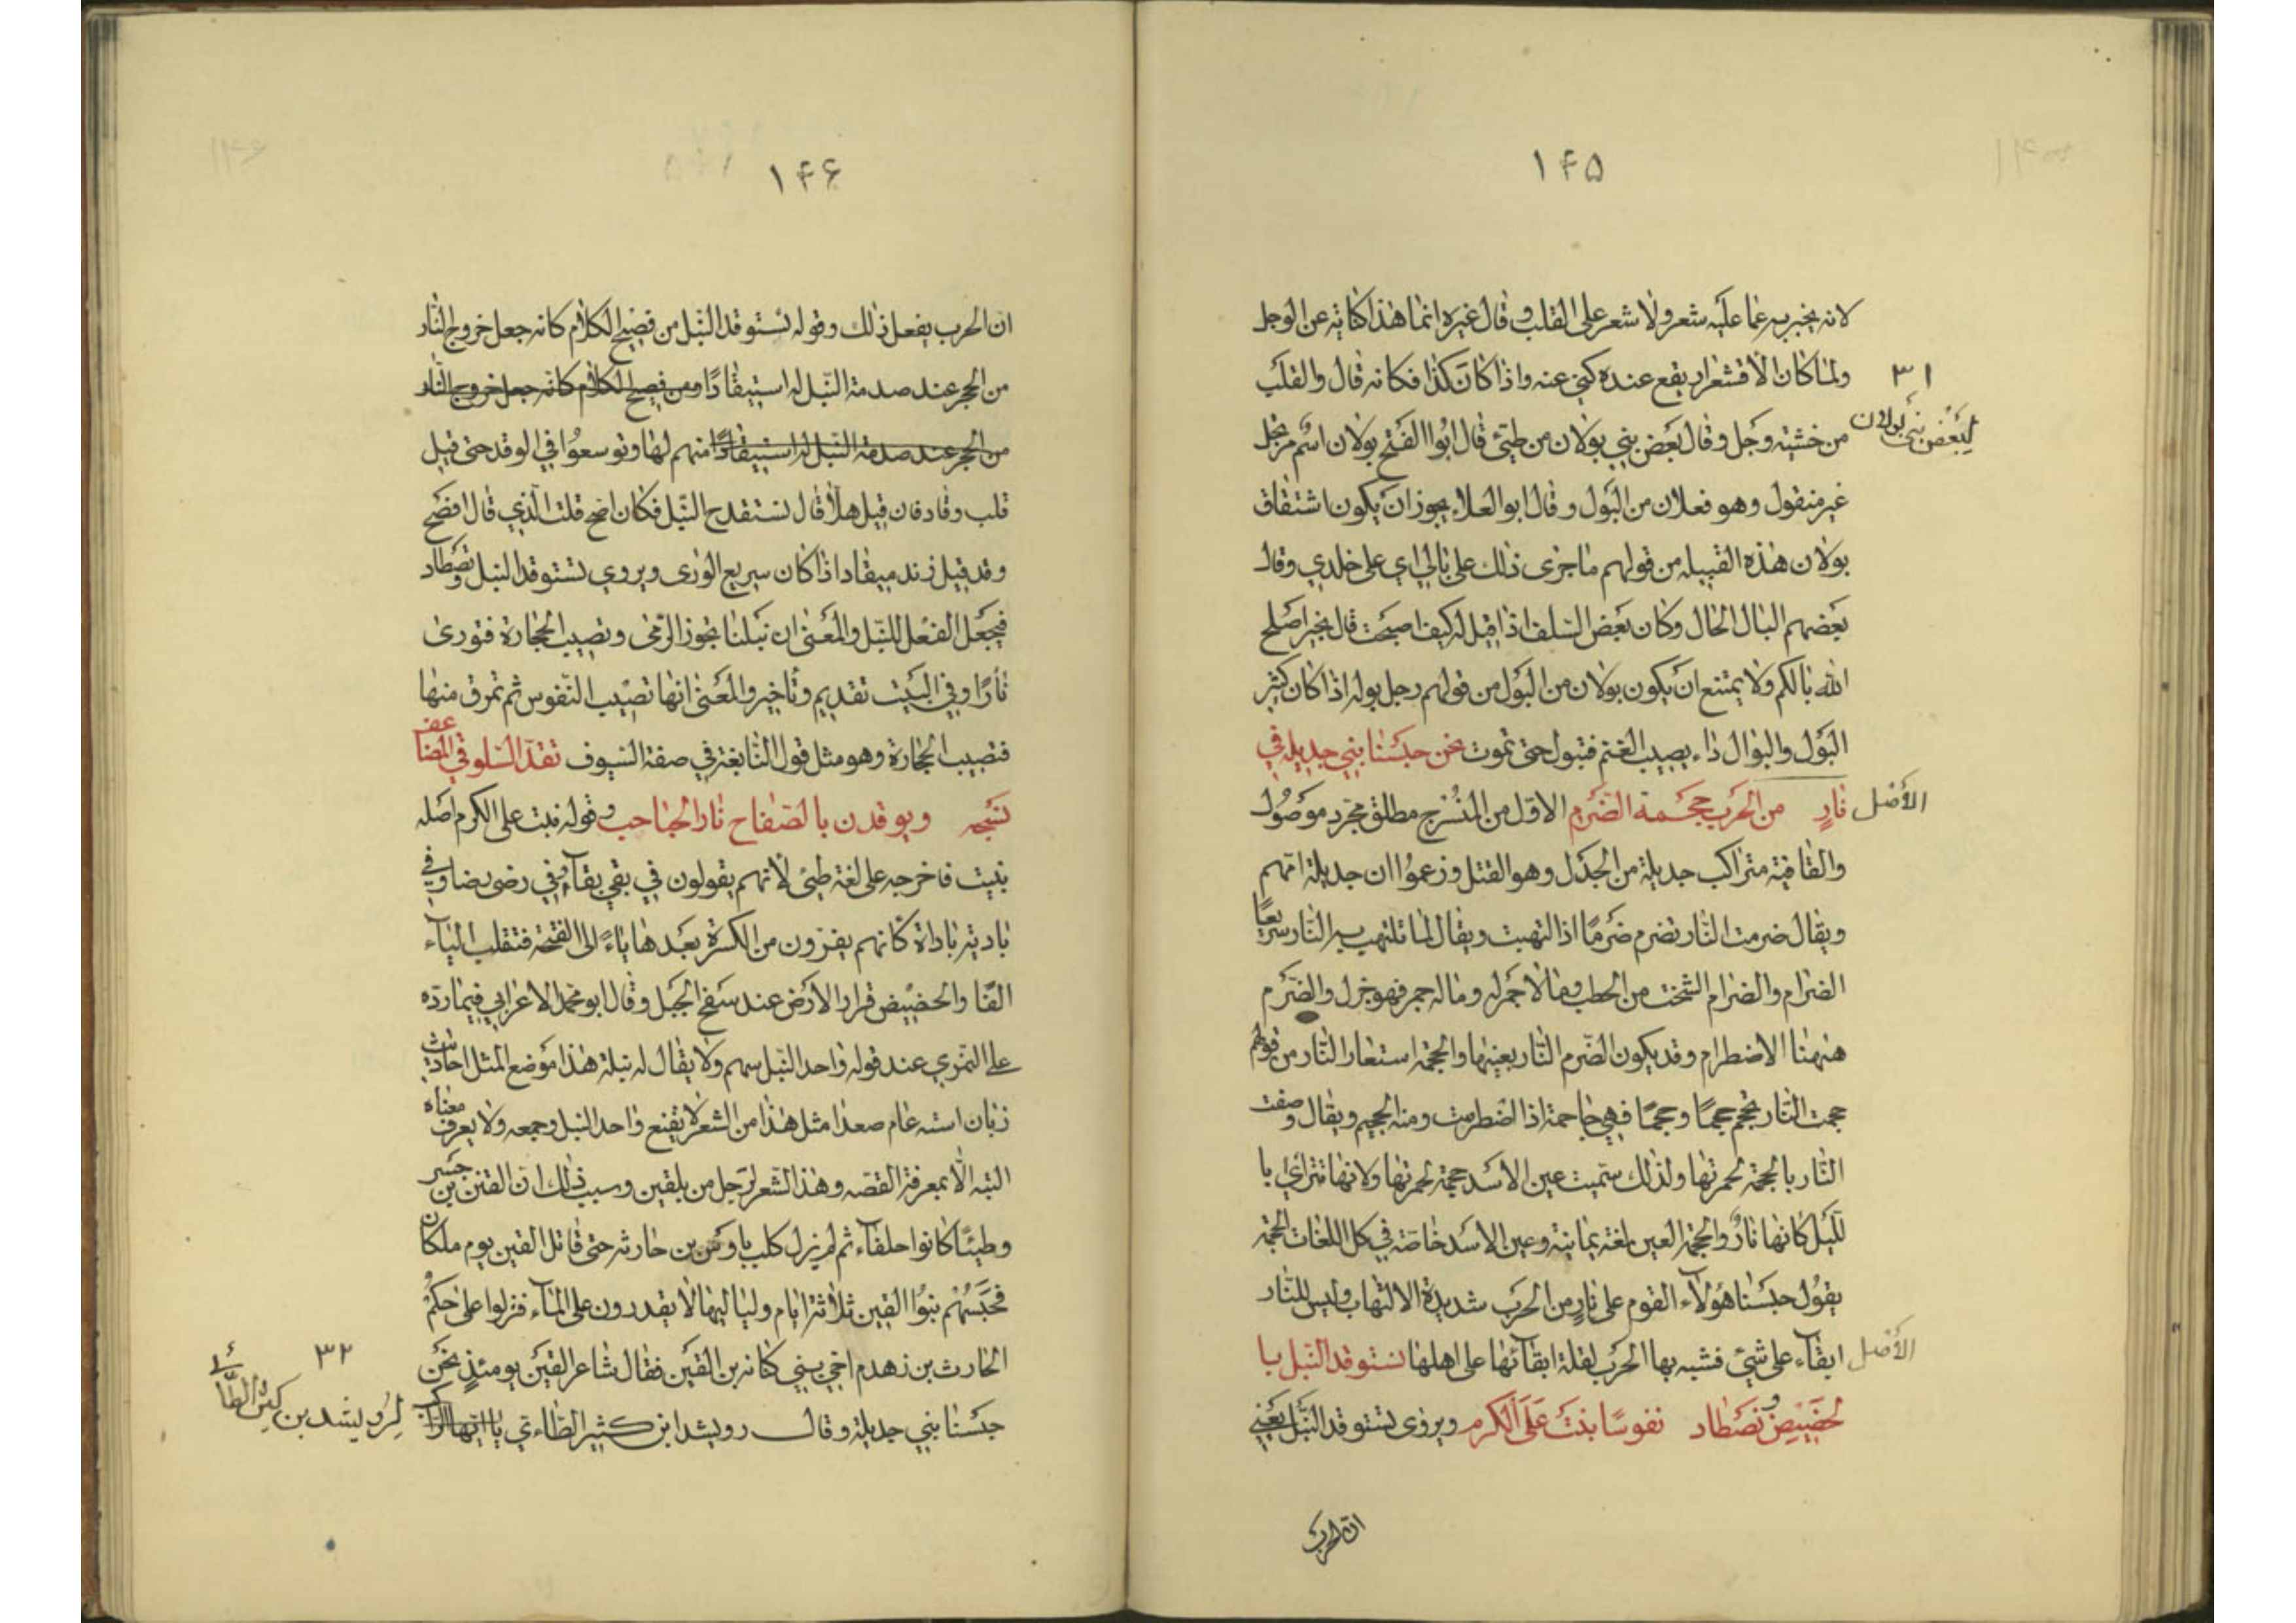 ١٤٥
لانه يخبر به عما عليه شعر ولا شعر على القلب وقال غيره انما هذا كناية عن الوجل
ولما كان الاقشعرار يقع عنده كنى عنه واذا كان كذا فكانه قال والقلب
من خشيته وجل وقال بعض بني بولان من طيئ قال ابوا الفتح بولان اسم مرتجل
غير منقول وهو فعلان من البول وقال ابو العلاء يجوز ان يكون اشتقاق
بولان هذه القبيله من قولهم ما جرى ذلك على بالي اي على خلدي وقال
بعضهم البال الحال وكان بعض السلف اذا قيل له كيف اصبحت قال بخير اصلح
الله بالكم ولا يمتنع ان يكون بولان من البول من قولهم رجل بوله اذا كان كثير
البول والبوال داء يصيب الغنم فتبول حتى تموت نحن حبسنا بني جديلة في
نارٍ من الحرب جحمة الضرم الاول من المنسرح مطلق مجرد موصول
والقافية متراكب جديلة من الجدل وهو القتل وزعموا ان جديلة امهم
ويقال ضرمت النار تضرم ضرمًا اذا التهبت ويقال لما تلتهب به النار سريعًا
الضرام والضرام الشخت من الحطب وما لا جمر له وما له جمر فهو جزل والضرم
ههنا الاضطرام وقد يكون الضرم النار بعينها والجحمة استعار النار من قولهم
جحمت النار تجحم جحمًا وجحمًا فهي جاحمة اذا اضطرمت ومنه الجحيم ويقال وصفت
النار بالجحمة لحمرتها ولذلك سميت عين الاسد جحمة لحمرتها ولانها تتراءى با
لليل كانها نارٌ والجحمة العين بلغة يمانية وعين الاسد خاصة في كل اللغات الجحمة
يقول حبسنا هؤلاء القوم على نارٍ من الحرب شديدة الالتهاب وليس للنار
ابقاء على شيئ فشبه بها الحرب لقلة ابقائها على اهلها نستوقد النبل با
لحضيض ونصطاد نفوسًا بنت على الكرم ويروى تستوقد النبل يعني
ان الحرب
٣١
لبعض بني بولان
الأصل
الأصل
١٤٦
ان الحرب يفعل ذلك وقوله نستوقد النبل من فصيح الكلام كانه جعل خروج النار
من الحجر عند صدمة النبل له استيقادًا ومن فصيح الكلام كانه جعل خروج النار
من الحجر عند صدمة النبل له استيقادًا منهم لها وتوسعوا في الوقد حتى قيل
قلب وقاد فان قيل هلا قال نستقدح النبل فكان اصح قلت الذي قال افصح
وقد قيل زند ميقاد اذا كان سريع الورى ويروى تستوقد النبل وتصطاد
فيجعل الفعل للنبل والمعنى ان نبلنا تجوز الرمى وتصيب الحجارة فتورى
نارًا وفي البيت تقديم وتاخير والمعنى انها تصيب النفوس ثم تمرق منها
فتصيب الحجارة وهو مثل قول النابغة في صفة السيوف تقد السلوقي المضاعف
نسجه ويوقدن بالصفاح نار الحباحب وقوله بنت على الكرم اصله
بنيت فاخرجه على لغة طيئ لانهم يقولون في بقي بقا وفي رضى رضا وفي
بادية باداة كانهم يفرون من الكسرة بعدها ياءً الى الفتحة فتقلب الياء
الفًا والحضيض قرار الارض عند سفح الجبل وقال ابو محمد الاعرابي فيما ردّه
على النمري عند قوله واحد النبل سهم ولا يقال له نبلة هذا موضع المثل احاديث
زبان استه عام صعدا مثل هذا من الشعر لا يقنع واحد النبل وجمعه ولا يعرف معناه
البته الا بمعرفة القصه وهذا الشعر لرجل من بلقين وسبب ذلك ان القين بن جسر
وطيئًا كانوا حلفاء ثم لم يزل كلب باوس بن حارثه حتى قاتل القين يوم ملكان
فحبسهم بنوا القين ثلاثة ايام ولياليها لا يقدرون على الماء فنزلوا على حكم
الحارث بن زهدم اخي بني كنانه بن القين فقال شاعر القين يومئذٍ نحن
حبسنا بني جديلة وقال رويشد ابن كثير الطاءي يا ايها الراكب
٣٢
لرويشد بن كثير الطائي